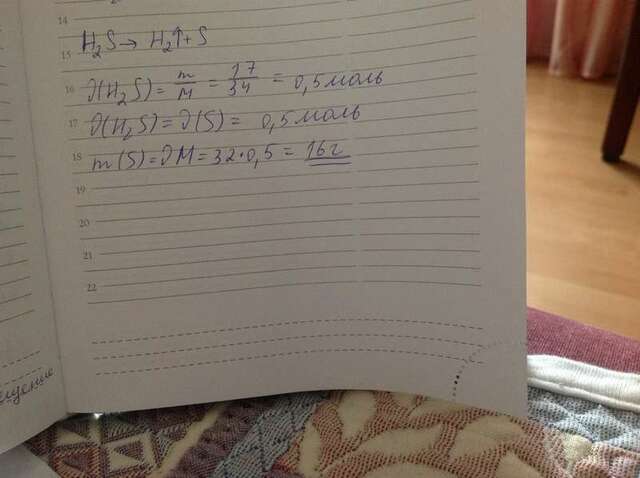 14
15 H₂S → H₂↑ + S
16 ∂(H₂S) = m/M = 17/34 = 0,5 моль
17 ∂(H₂S) = ∂(S) = 0,5 моль
18 m(S) = ∂M = 32·0,5 = 16г
19
20
21
22